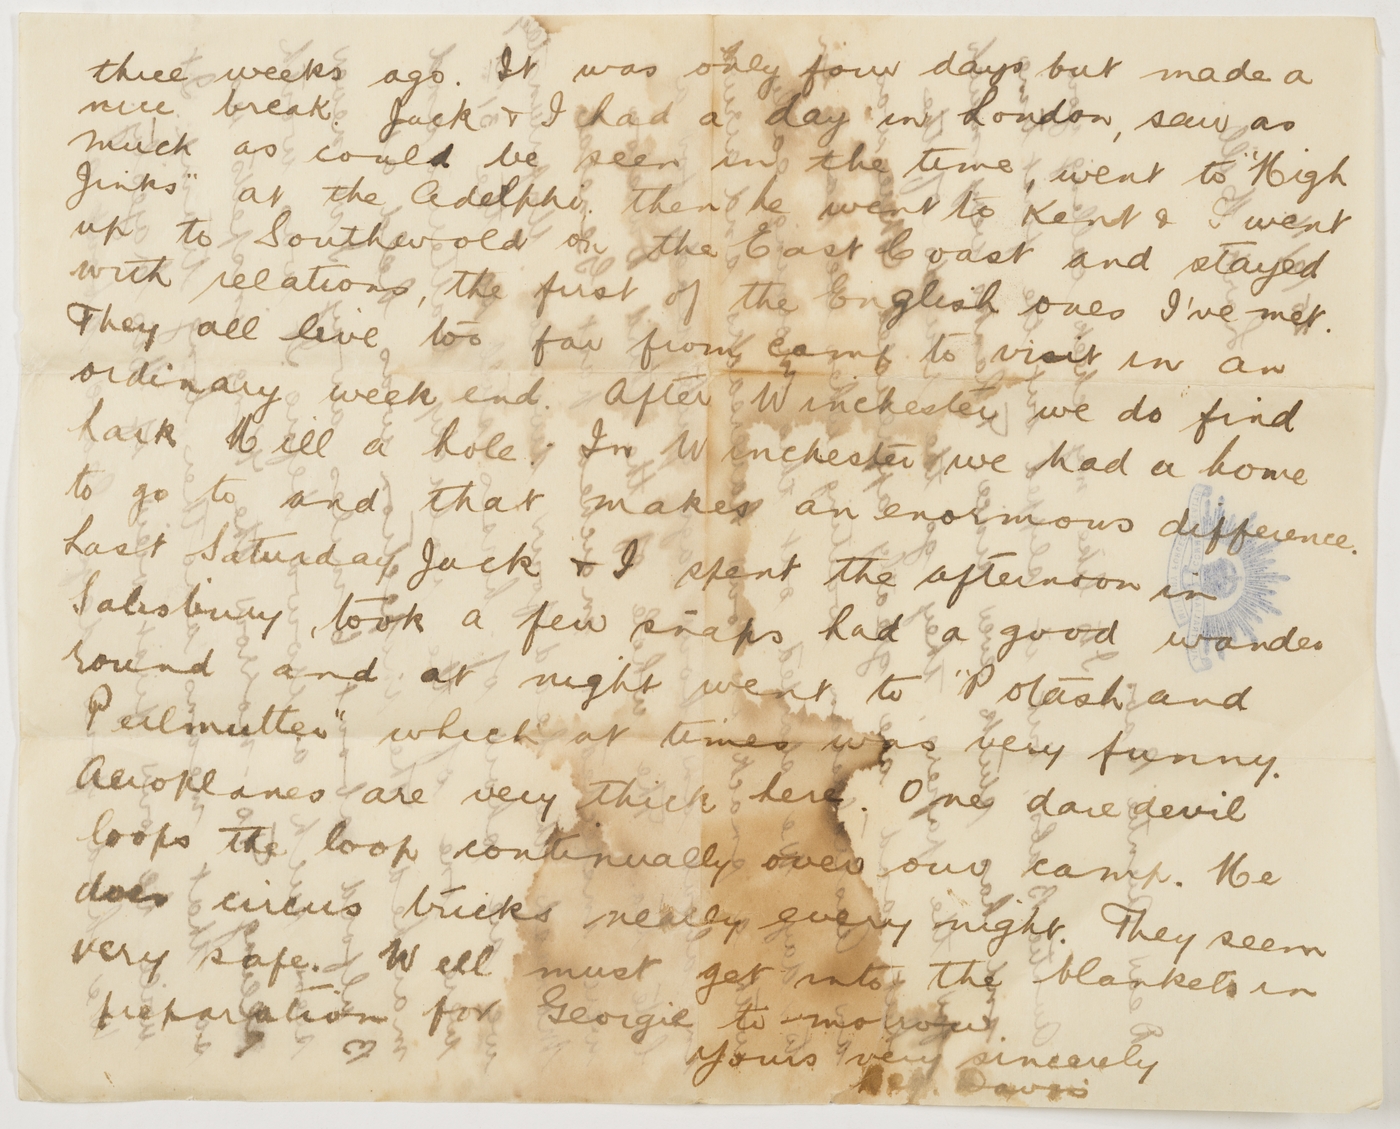 three weeks ago. It was only four days but made a
nice break. Jack & I had a day in London, saw as
much as could be seen in the time, went to "High
Jinks" at the Adelphi. then he went to Kent & I went
up to Southwold on the East Coast and stayed
with relations, the first of the English ones I've met.
They all live too far from camp to visit in an
ordinary week end. After Winchester we do find
Lark Hill a hole. In Winchester we had a home
to go to and that makes an enormous difference.
Last Saturday Jack & I spent the afternoon in
Salisbury, took a few snaps had a good wander
round and at night went to "Potash and
Perlmutter" which at times was very funny.
Aeroplanes are very thick here. One dare devil
loops the loop continually over our camp. He
does circus tricks nearly every night. They seem
very safe. Well must get into the blankets in
preparation for Georgie to-morrow
Yours very sincerely